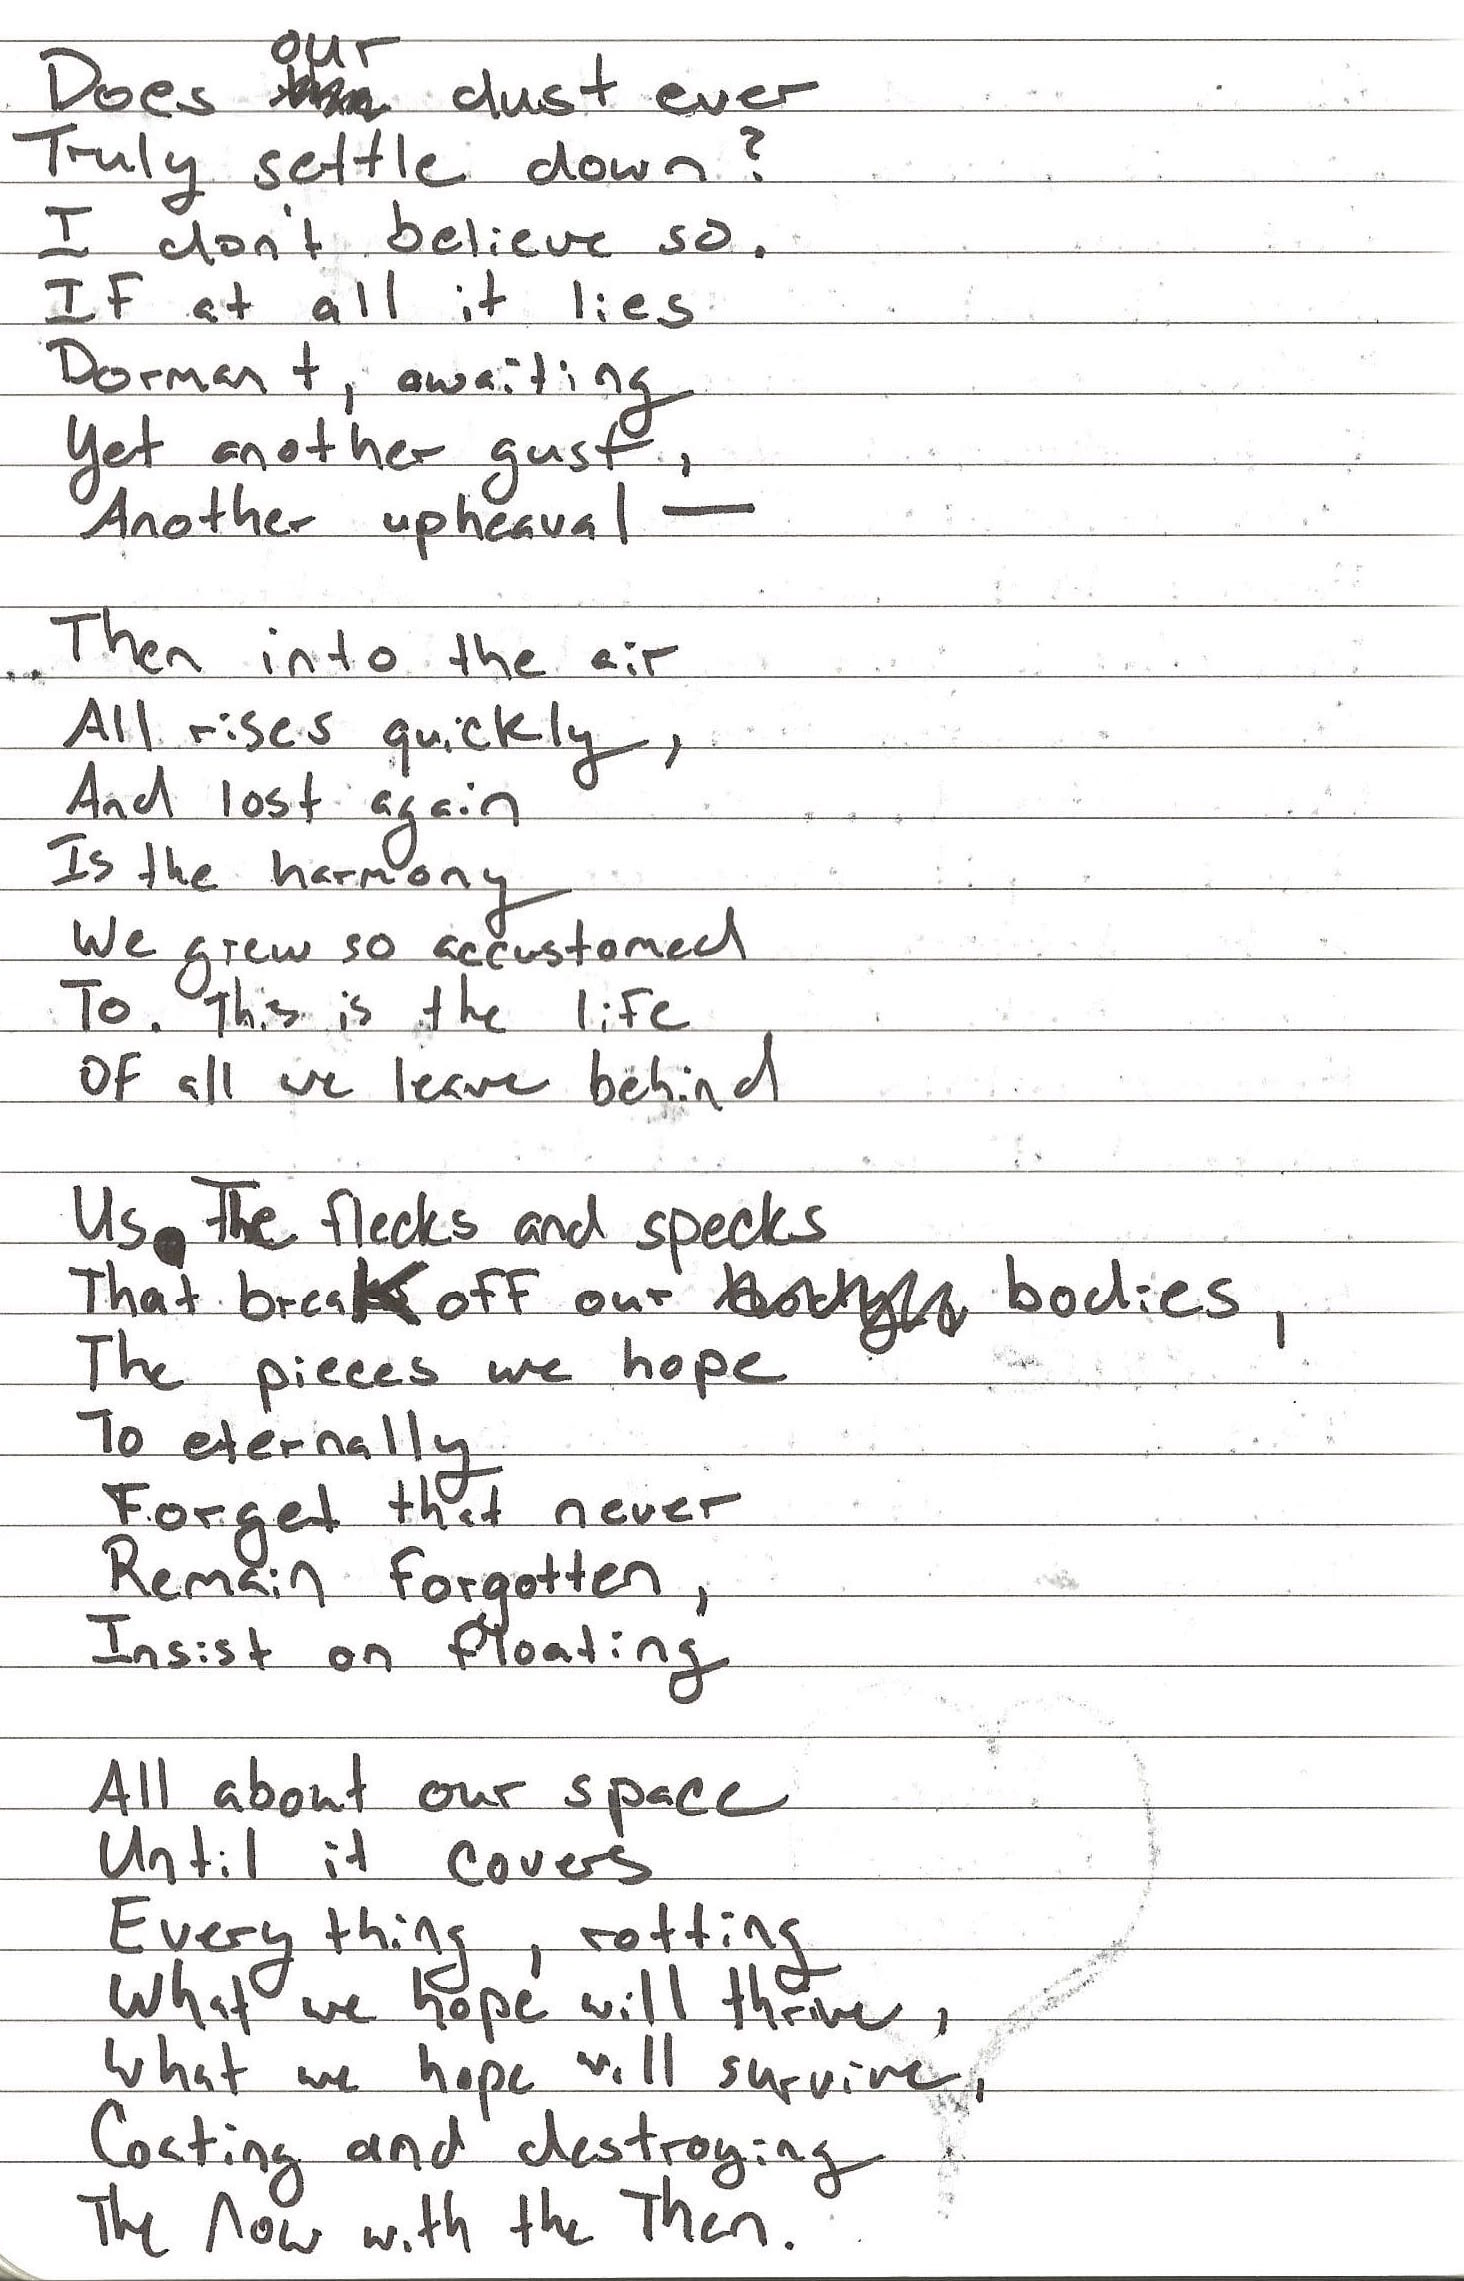 Does our dust ever
Truly settle down?
I don't believe so.
IF at all it lies
Dormant, awaiting
Yet another gust,
Another upheaval —
Then into the air
All rises quickly,
And lost again
Is the harmony
We grew so accustomed
To. This is the life
OF all we leave behind
Us. The flecks and specks
That break off our bodies,
The pieces we hope
To eternally
Forget that never
Remain forgotten,
Insist on floating
All about our space
Until it covers
Everything, rotting
What we hope will thrive,
What we hope will survive,
Coating and destroying
The Now with the Then.